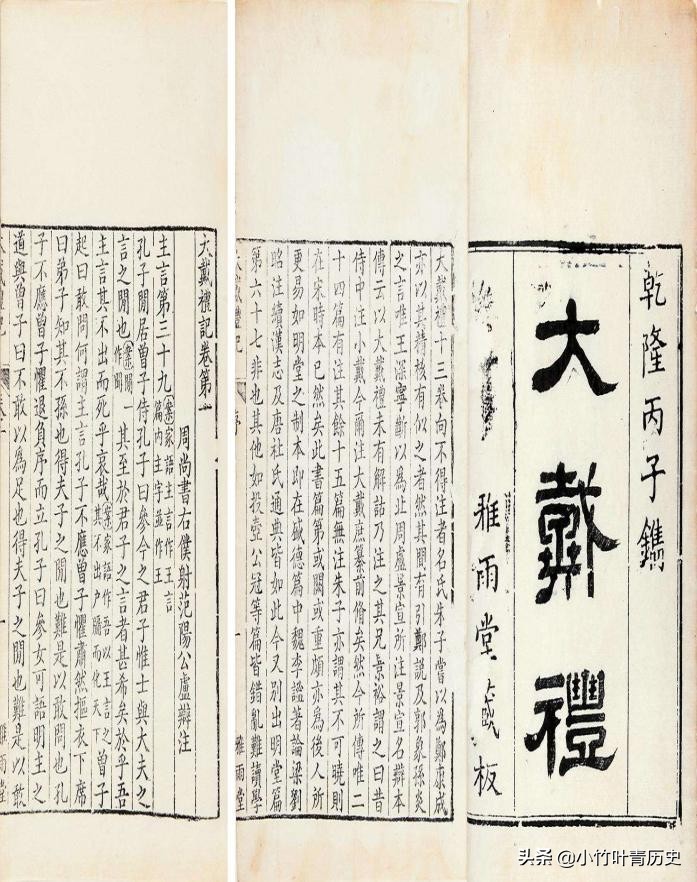 乾隆丙子鐫
大戴禮
雅雨堂藏板
大戴禮十三卷向不得注者名氏朱子嘗以為鄭康成
亦以其精核有似之者然其間有引鄭說及郭象孫炎
之言唯王深寧斷以為北周盧景宣所注景宣名辯本
傳云以大戴禮未有解詁乃注之其兄景裕謂之曰昔
侍中注小戴今爾注大戴庶纂前脩矣然今所傳唯二
十四篇有注其餘十五篇無注朱子亦謂其不可曉則
在宋時本已然矣此書篇第或闕或重頗亦為後人所
更易如明堂之制本即在盛德篇中魏李謐著論梁劉
昭注續漢志及唐杜氏通典皆如此今又別出明堂篇
第六十七非也其他如投壺公冠等篇皆錯亂難讀學
大戴禮記 序 一 雅雨堂
大戴禮記卷第一
周尚書右僕射范陽公盧辯注
主言第三十九案家語主言作王言篇內主字並作王
孔子閒居曾子侍孔子曰參今之君子惟士與大夫之
言之閒也案閒一作聞其至於君子之言者甚希矣於乎吾
主言其不出而死乎哀哉案家語作吾以王言之其不出戶牖而化天下曾子
起曰敢問何謂主言孔子不應曾子懼肅然摳衣下席
曰弟子知其不孫也得夫子之閒也難是以敢問也孔
子不應曾子懼退負序而立孔子曰參女可語明主之
道與曾子曰不敢以為足也得夫子之閒也難是以敢
大戴禮記 一 雅雨堂
头条 @小竹叶青历史